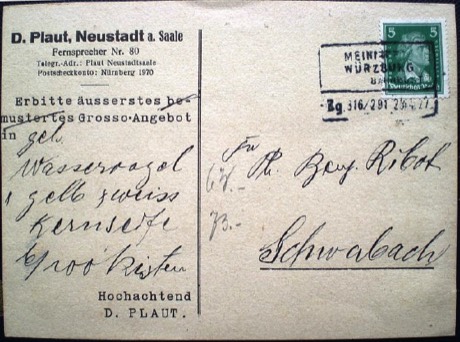 D. Plaut, Neustadt a. Saale
Fernsprecher Nr. 80
Telegr.-Adr.: Plaut Neustadtsaale
Postscheckkonto: Nürnberg 1970
Erbitte äusserstes be-
mustertes Grosso-Angebot
in gelb
Wasservogel
gelb & weiss
Kernseife
6/100 Kisten
Hochachtend
D. PLAUT.
5
5
MEIN
WÜRZBURG
Zg. 316/291
Fa
Ph. Benj. Ribot
67.-
73.-
Schwabach